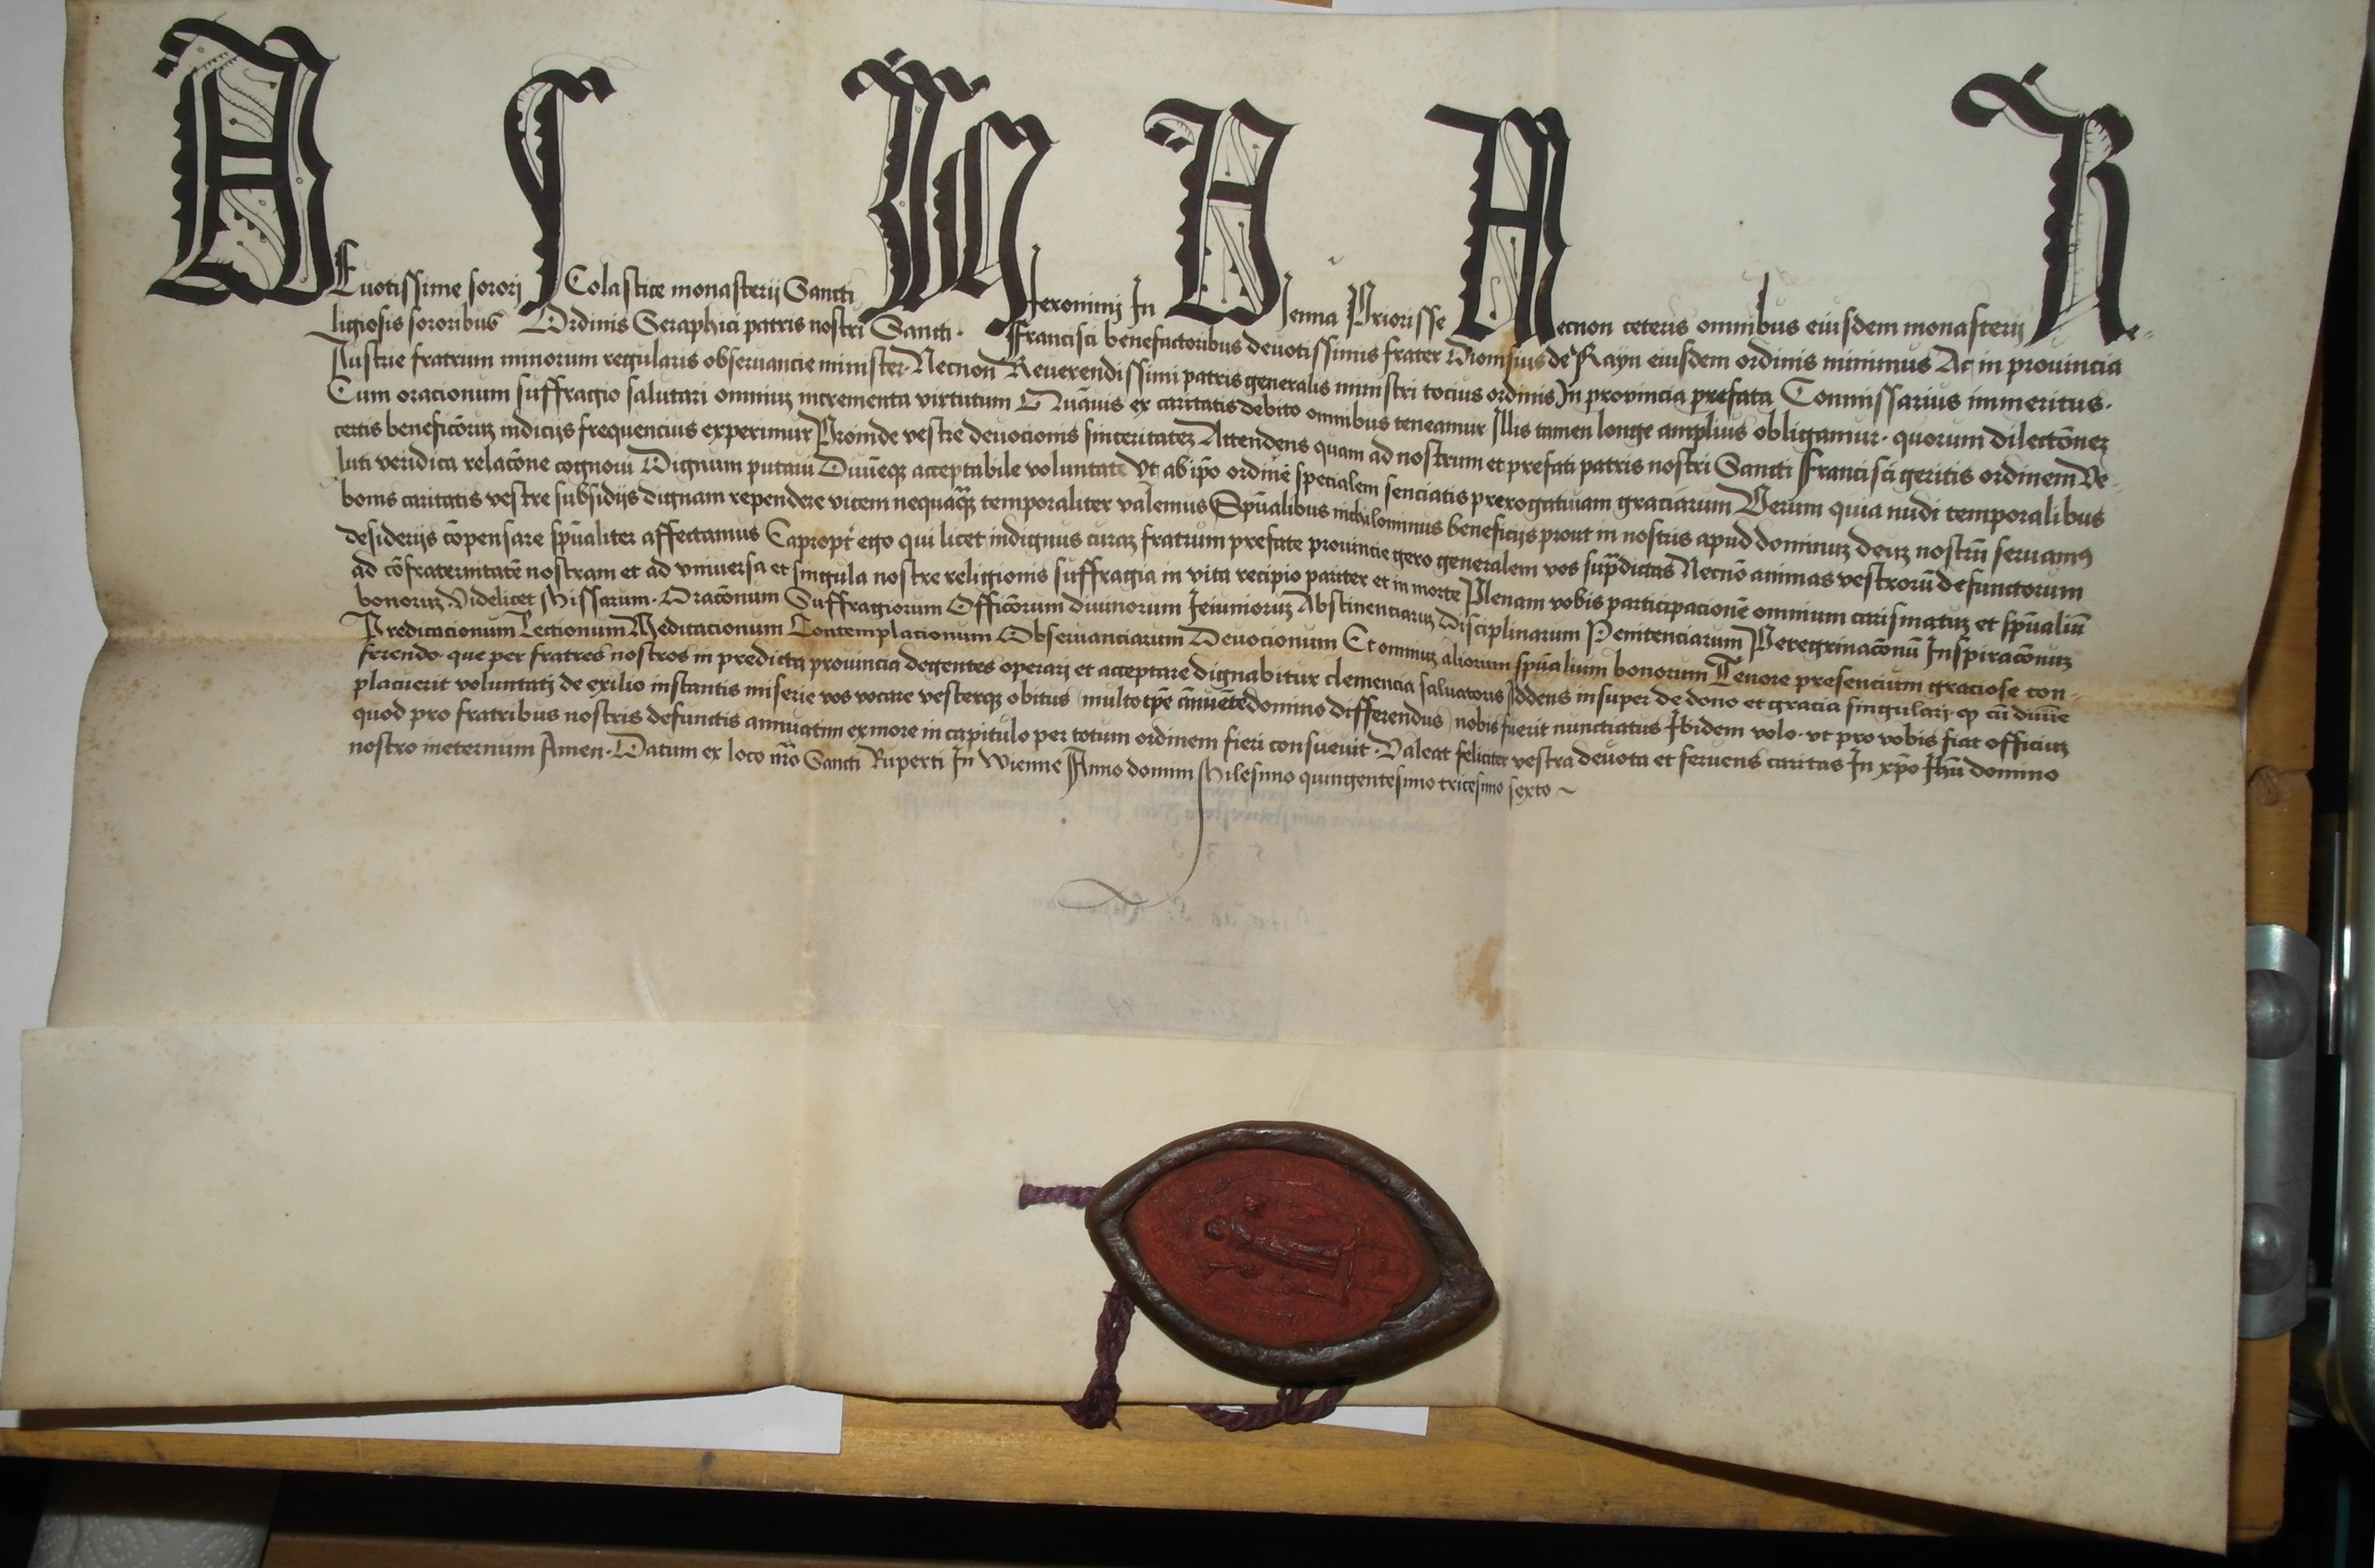 DEuotissime sorori SColastice monasterij Sancti Jeronimj In Wienna Priorisse Necnon ceteris omnibus eiusdem monasterij Re-
ligiosis sororibus Ordinis Seraphici patris nostri Sancti· Francisci benefactoribus deuotissimis frater Dionisius de Rayn eiusdem ordinis minimus Ac in prouincia
Austrie fratrum minorum regularis obseruancie minister· Necnon Reuerendissimi patris generalis ministri tocius ordinis In prouincia prefata Commissarius immeritus·
Cum oracionum suffragio salutari omniuz incrementa virtutum Quāuis ex caritatis debito omnibus teneamur Illis tamen longe amplius obligamur· quorum dilectōnez
certis beneficōruz indicijs frequencius experimur Proinde vestre deuocionis sinceritatez Attendens quam ad nostrum et prefati patris nostri Sancti Francisci geritis ordinem Ve-
luti veridica relacōne cognoui Dignum putaui Diuīeqz acceptabile voluntati Vt ab ip̄o ordinē specialem senciatis prerogatiuam graciarum Verum quia nudi temporalibus
bonis caritatis vestre subsidijs dignam rependere vicem nequaq̄z temporaliter valemus Sp̄ualibus nichilominus beneficijs prout in nostris apud dominuz deuz nostrū seruamꝰ
desiderijs cōpensare sp̄ualiter affectamus Eapropt̄ ego qui licet indignus curaz fratrum prefate prouincie gero generalem vos sup̄dictas Necnō animas vestrorū defunctorum
ad cōfraternitatē nostram et ad vniuersa et singula nostre religionis suffragia in vita recipio pariter et in morte Plenam vobis participacionē omnium carismatuz et sp̄ualiū
bonoruz Videlicet Missarum· Oracōnum Suffragiorum Officōrum diuinorum Jeiunioruz Abstinenciaruz Disciplinarum Penitenciarum Peregrinacōnū Inspiracōnuz
Predicacionum Lectionum Meditacionum Contemplacionum Obseruanciarum Deuocionum Et omniuz aliorum sp̄ualium bonorum Tenore presencium graciose con-
ferendo· que per fratres nostros in predicta prouincia degentes operarj et acceptare dignabitur clemencia saluatoris Addens insuper de dono et gracia singularj· ꝙ cū diuīe
placuerit voluntatj de exilio instantis miserie vos vocare vesterqz obitus (multo tp̄e ānuēte domino differendus) nobis fuerit nunctiatus Ibidem volo· vt pro vobis fiat officiuz
quod pro fratribus nostris defunctis annuatim ex more in capitulo per totum ordinem fieri consueuit· Valeat feliciter vestra deuota et feruens caritas In xp̄o Jhū domino
nostro ineternum Amen· Datum ex loco nr̄o Sancti Ruperti In Wienne Anno domini Milesimo quingentesimo tricesimo sexto ~